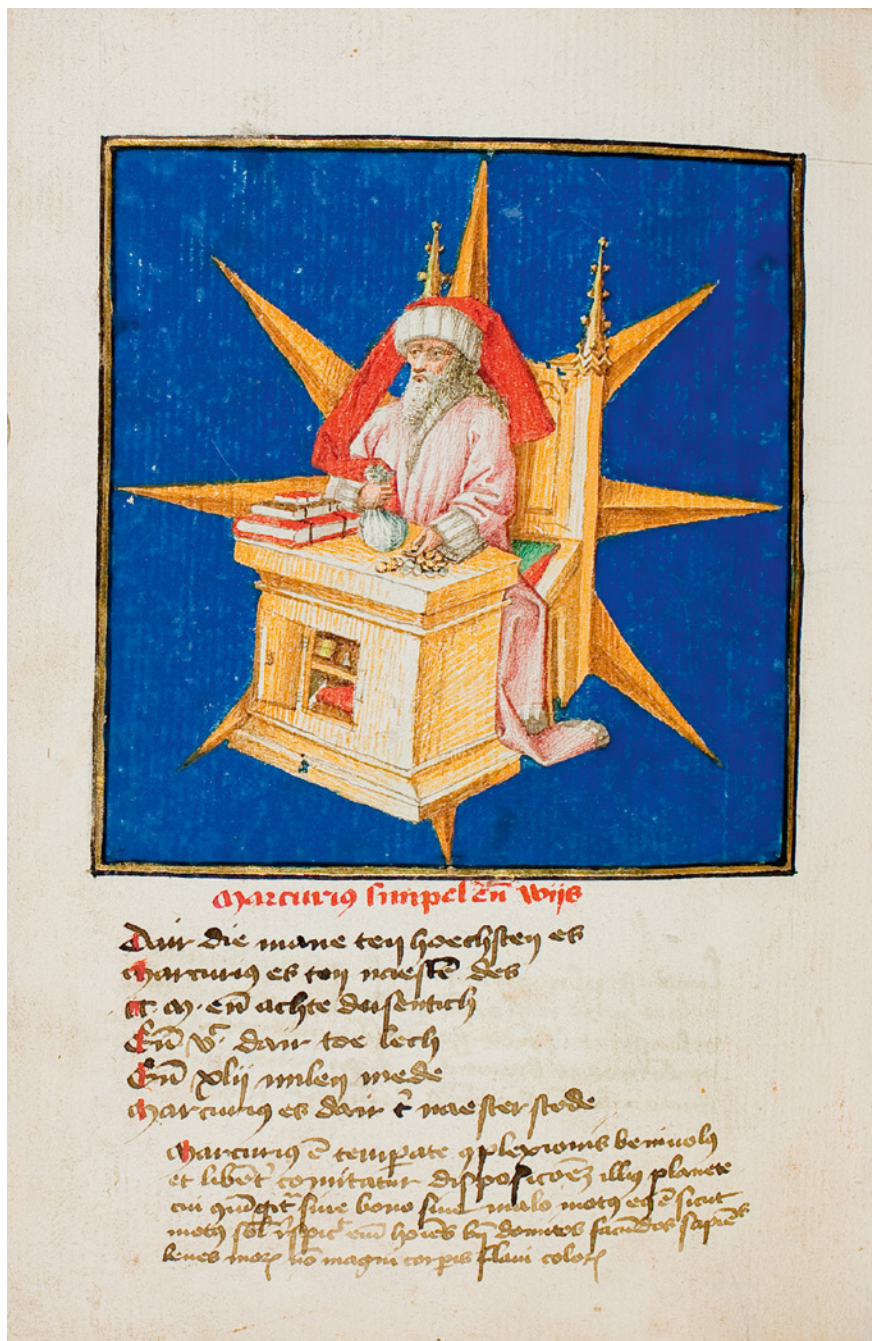 Marcuri9 simpel en̄ wijs
Dair die mane ten hoechsten es
Marcuri9 es ten naestē des
C. M. en̄ achte duisentich
En̄ vc dair toe lech
En̄ xlij milen mede
Marcuri9 es dair naester stede
Marcuri9 ē temperate 9plexionis beniuol9
et libent comitatur disposicōem illi9 planete
cui siue bono siue malo mot9 ē sicut
mot9 sol hōies facūdos sapiēs
leues mor nō magni corpis flaui color